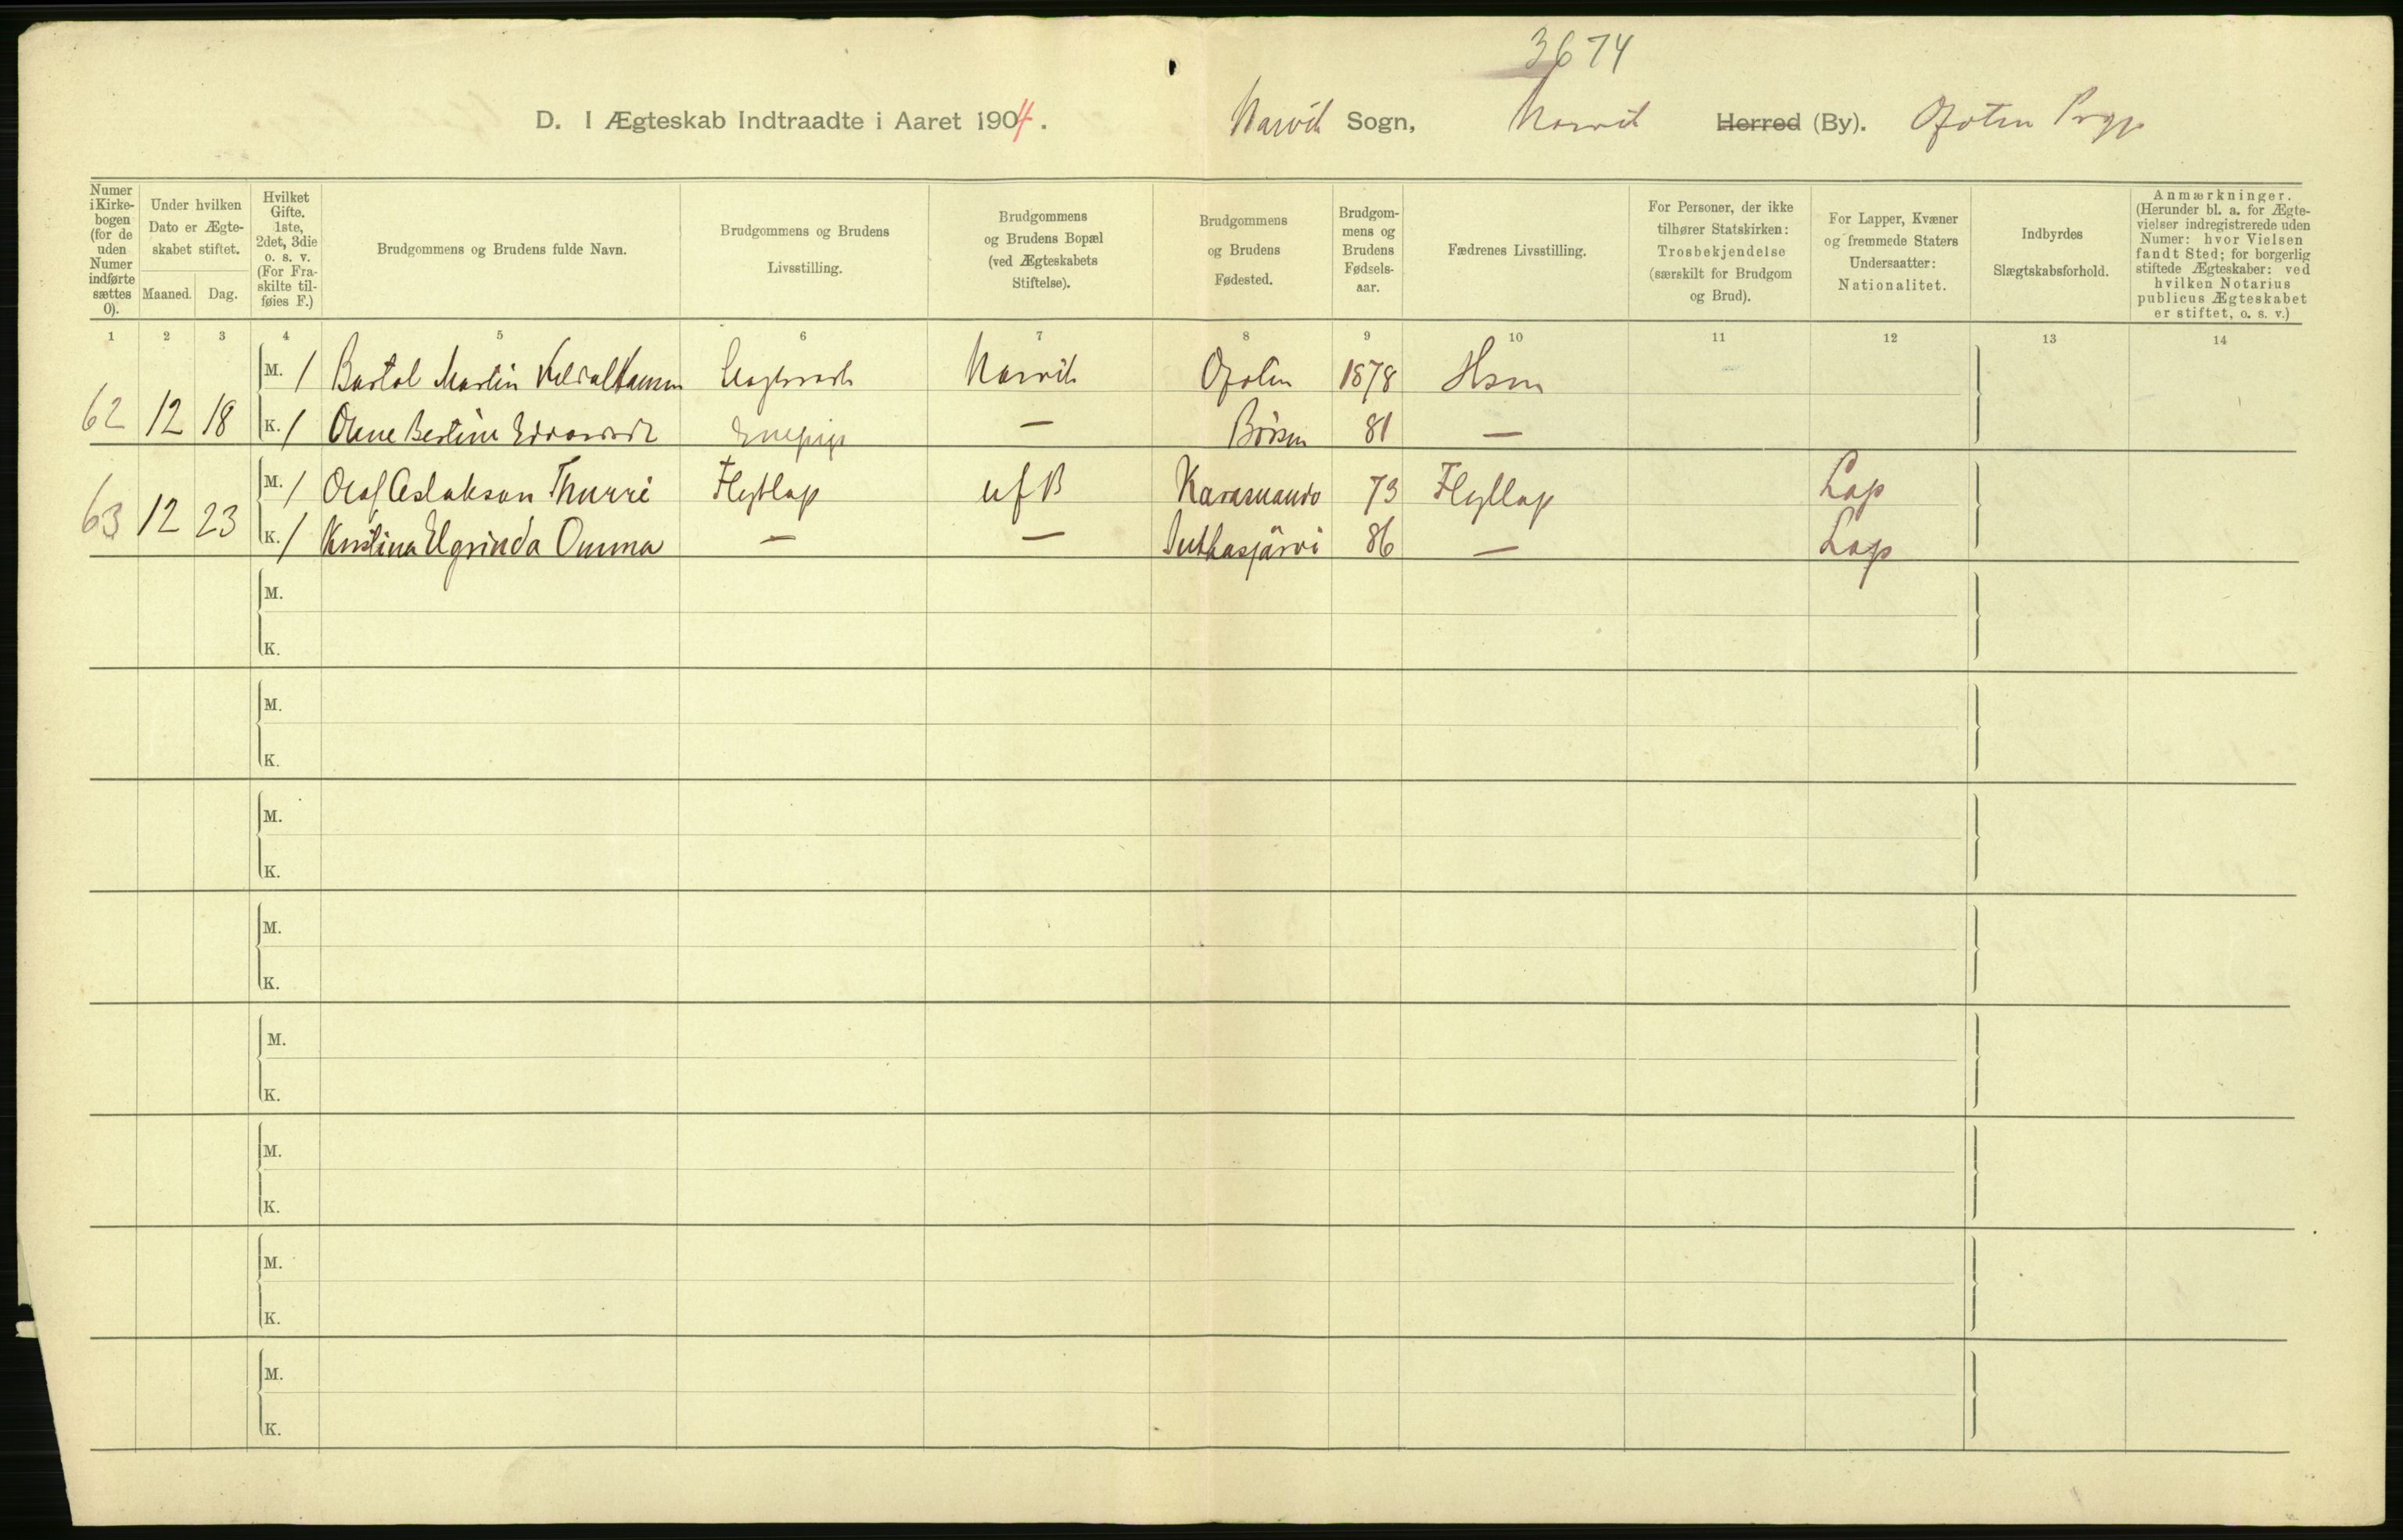 3674
D. I Ægteskab Indtraadte i Aaret 1904. Narvik Sogn, Narvik Herred (By). Ofoten Prgj
Numer i Kirkebogen (for de uden Numer indførte sættes 0).
Under hvilken Dato er Ægteskabet stiftet.
Maaned. Dag.
Hvilket Gifte. 1ste, 2det, 3die o. s. v. (For Fraskilte tilføies F.)
Brudgommens og Brudens fulde Navn.
Brudgommens og Brudens Livsstilling.
Brudgommens og Brudens Bopæl (ved Ægteskabets Stiftelse).
Brudgommens og Brudens Fødested.
Brudgommens og Brudens Fødselsaar.
Fædrenes Livsstilling.
For Personer, der ikke tilhører Statskirken: Trosbekjendelse (særskilt for Brudgom og Brud).
For Lapper, Kvæner og fremmede Staters Undersaatter: Nationalitet.
Indbyrdes Slægtskabsforhold.
Anmærkninger. (Herunder bl. a. for Ægtevielser indregistrerede uden Numer: hvor Vielsen fandt Sted; for borgerlig stiftede Ægteskaber: ved hvilken Notarius publicus Ægteskabet er stiftet, o. s. v.)
1 2 3 4 5 6 7 8 9 10 11 12 13 14
M. / Bartol Martin Narvik Ofoten 1878 Hsm
62 12 18 K. / Olene Bertine Ednepige — Börsen 81 —
M. / Olaf Aslaksen Thurri Flytlap ufB Karesuando 73 Flytlap Lap
63 12 23 K. / Kristina Elgrinda Omma — — Juckasjärvi 86 — Lap
M.
K.
M.
K.
M.
K.
M.
K.
M.
K.
M.
K.
M.
K.
M.
K.